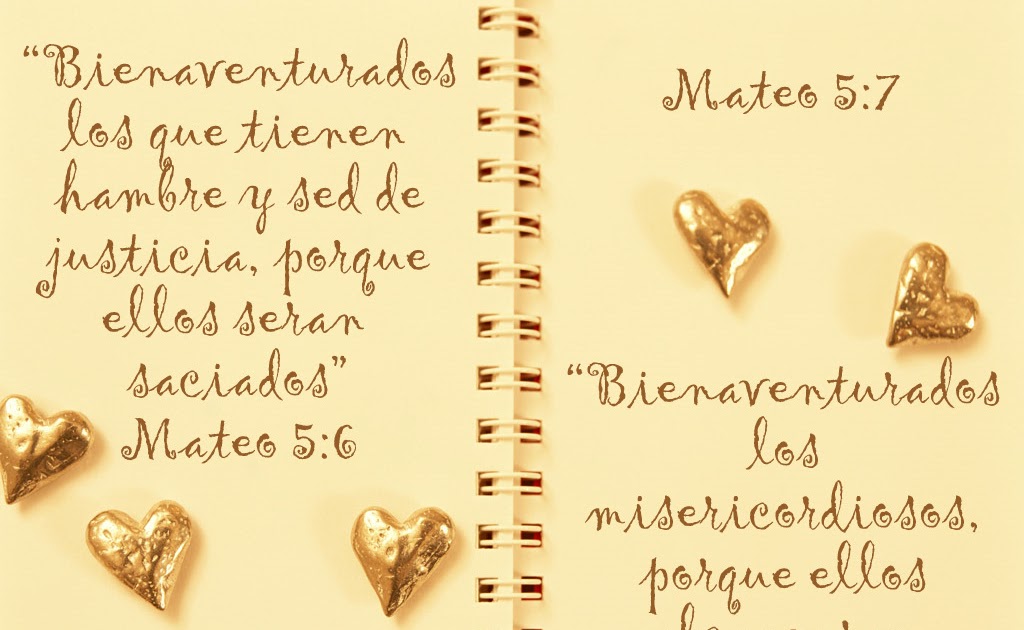 “Bienaventurados
los que tienen
hambre y sed de
justicia, porque
ellos seran
saciados”
Mateo 5:6
Mateo 5:7
“Bienaventurados
los
misericordiosos,
porque ellos